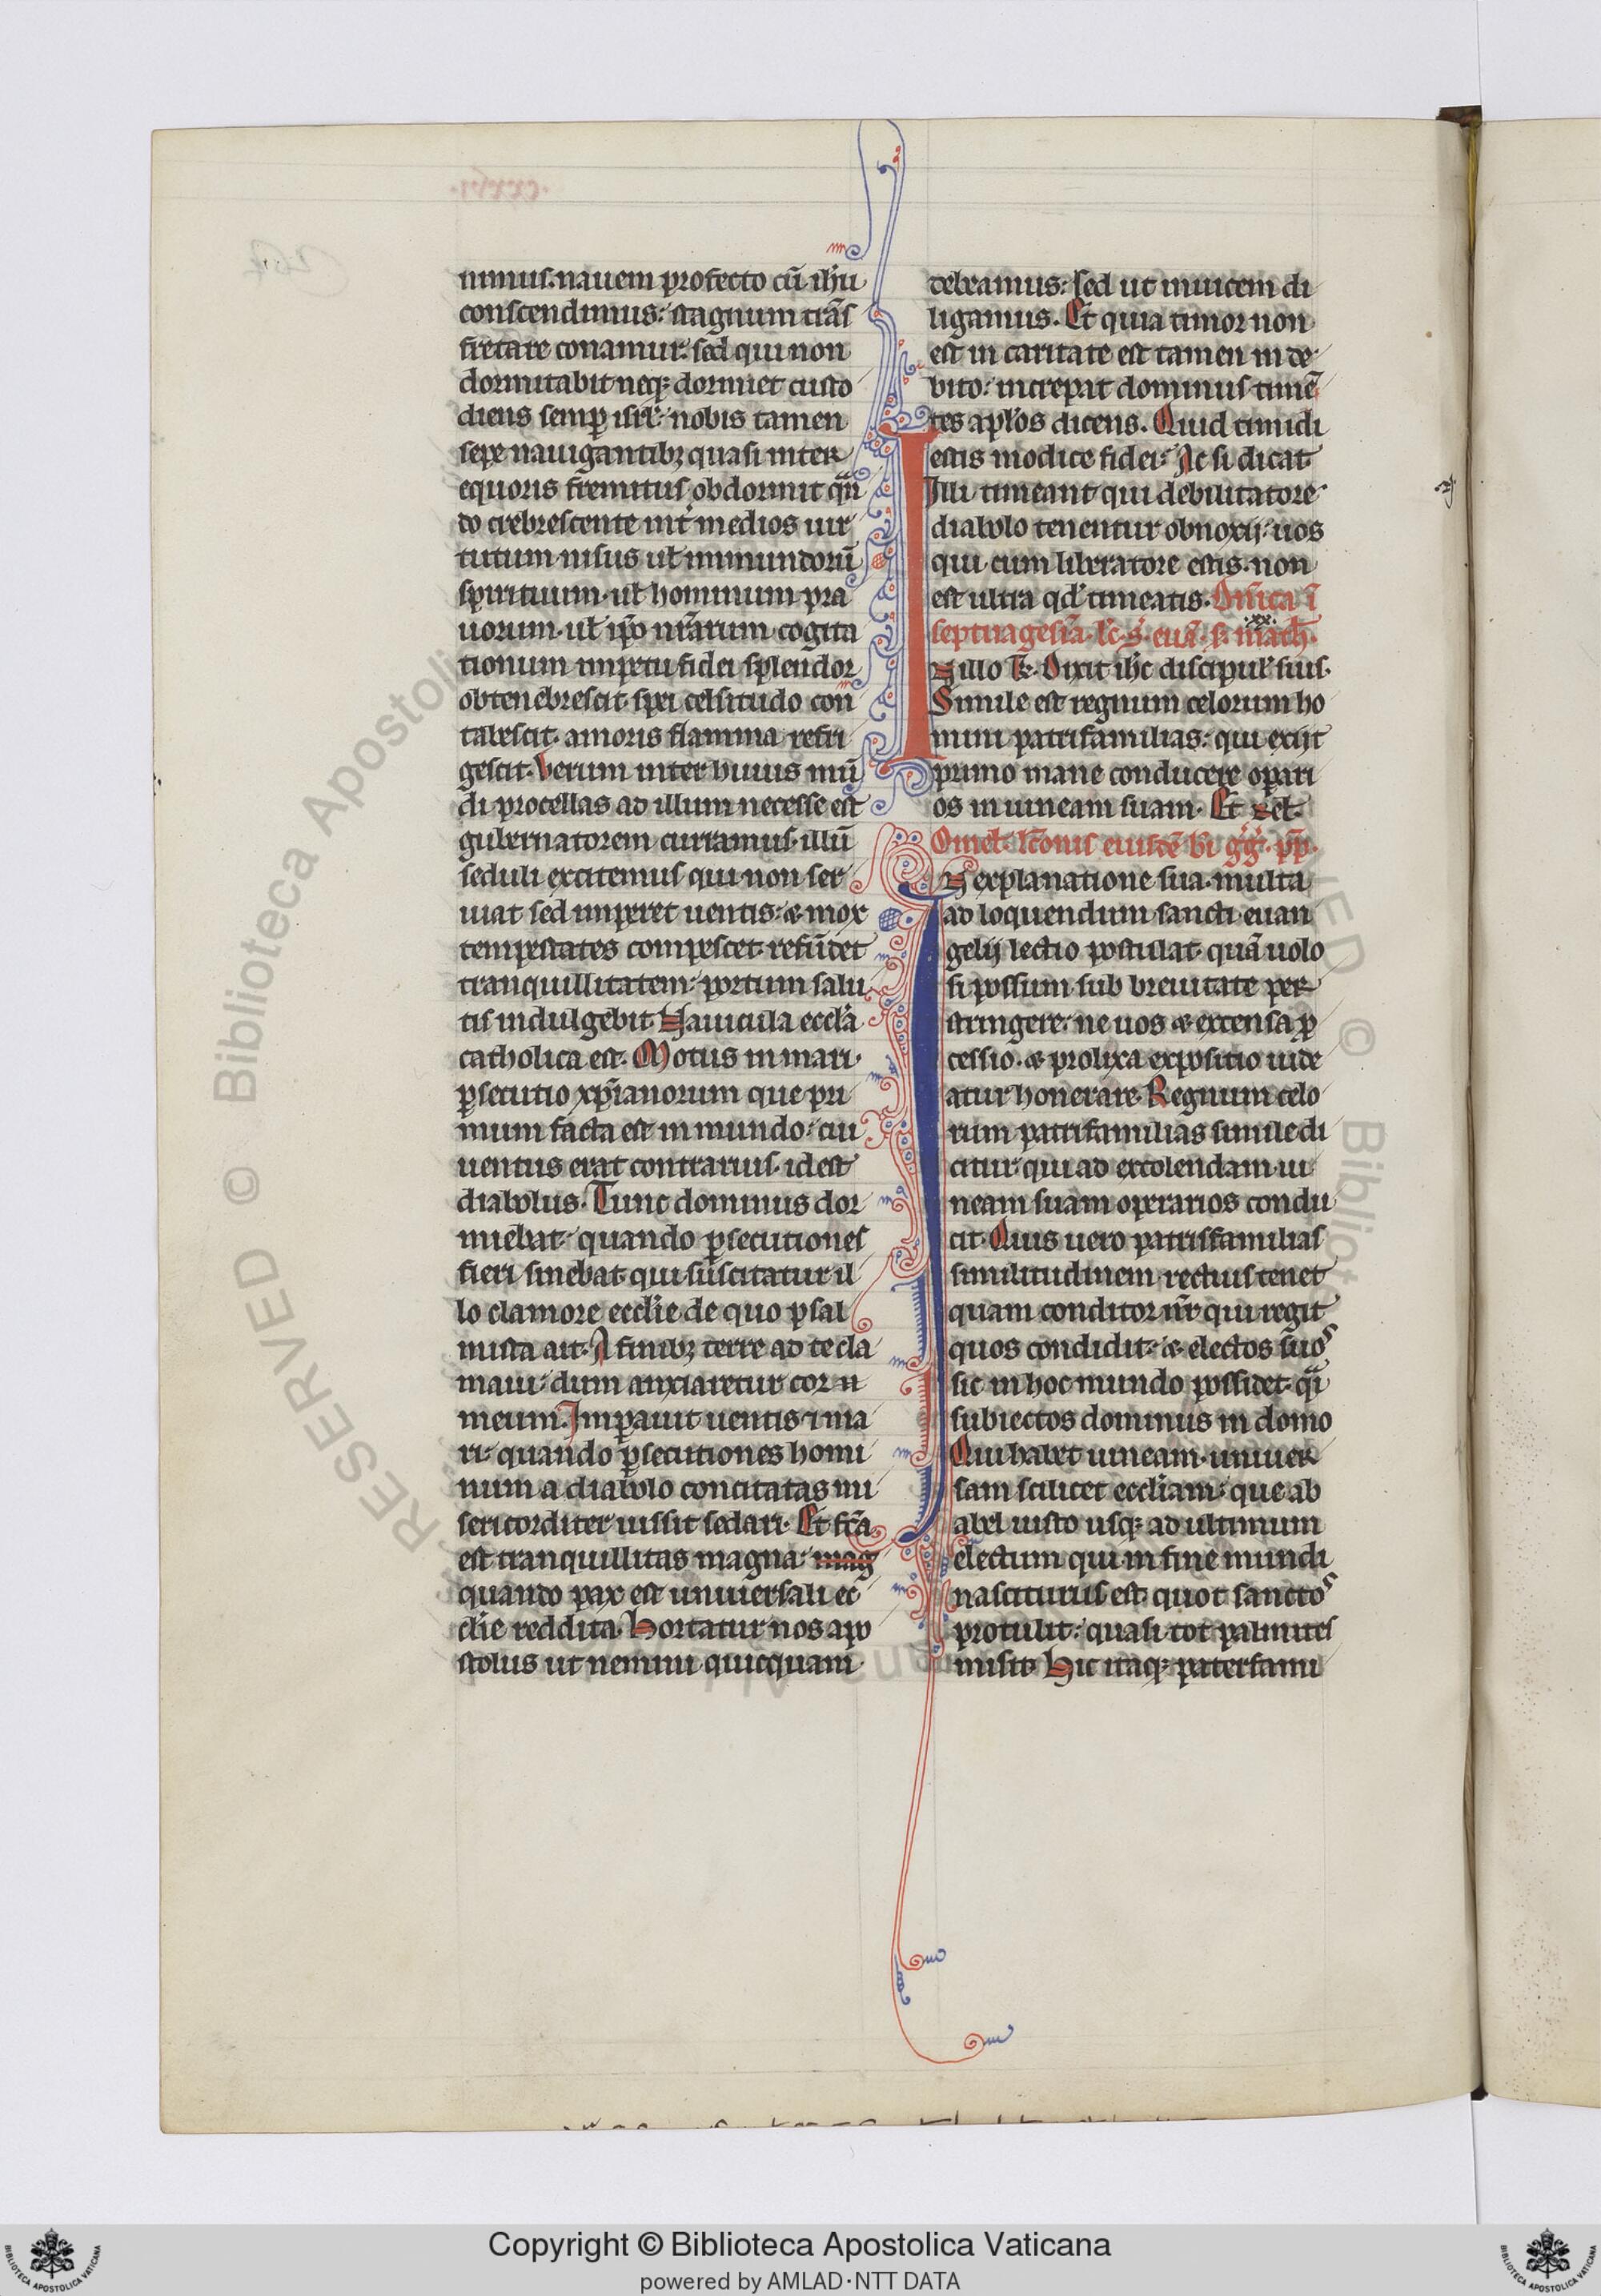 nimus. nauem profecto cũ ihũ
conscendimus: stagnum trãs
fretare conamur. sed qui non
dormitabit neq; dormiet custo
diens semꝑ isrł. nobis tamen
sepe nauigantibꝫ quasi inter
equoris fremitus obdormit qñ
do crebrescente int̾ medios uir
tutum nisus uł inmundorũ
spirituum. uł hominum pra
uorum. uł ip̃o nr̃arum cogita
tionum impetu fidei splendor
obtenebrescit. spei celsitudo con
tabescit. amoris flamma refri
gescit. Verum inter huius mũ
di procellas ad illum necesse est
gubernatorem curramus. illũ
seduli excitemus qui non ser
uiat sed imperet uentis: & mox
tempestates compescet. refũdet
tranquillitatem: portum salu
tis indulgebit. Nauicula eccl̃a
catholica est. Motus in mari.
ꝑsecutio xp̃ianorum que pri
mum facta est in mundo: cui
uentus erat contrarius. id est
diabolus. Tunc dominus dor
miebat: quando ꝑsecutiones
fieri sinebat. qui suscitatur il
lo clamore eccl̃ie de quo psal
mista ait. A finibꝫ terre ad te cla
maui: dum anxiaretur cor n
meum. Imꝑauit uentis ⁊ ma
ri: quando ꝑsecutiones homi
num a diabolo concitatas mi
sericorditer iussit sedari. Et fc̃a
est tranquillitas magna: mag
quando pax est uniuersali ec
cl̃ie reddita. Hortatur nos apo
stolus ut nemini quicquam
cxxvi.
debeamus: sed ut inuicem di
ligamus. Et quia timor non
est in caritate est tamen in de
bito: increpat dominus timẽ
tes apl̃os dicens. Quid timidi
estis modice fidei: Ac si dicat
Illi timeant qui debilitatore
diabolo tenentur obnoxij: uos
qui cum liberatore estis. non
est ultra qđ timeatis. Dñica ĩ
septuagesĩa. łc. s. euã. s. math̃.
.xx.
IN illo t̃. Dixit ihc̃ discipuł suis.
Simile est regnum celorum ho
mini patrifamilias: qui exijt
primo mane conducere operari
os in uineam suam. Et reł.
Omeł. łc̃onis eiusdẽ bĩ gg̃. pp̃.
IN explanatione sua multa
ad loquendum sancti euan
gelij lectio postulat. quã uolo
si possum sub breuitate per
stringere: ne uos & extensa ꝓ
cessio. & prolixa expositio uide
atur honerare. Regnum celo
rum patrifamilias simile di
citur: qui ad excolendam ui
neam suam operarios condu
cit. Quis uero patrisfamilias
similitudinem rectius tenet
quam conditor nr̃. qui regit
quos condidit: & electos suos
sic in hoc mundo possidet. q̃i
subiectos dominus in domo
Qui habet uineam. uniuer
sam scilicet eccl̃iam: que ab
abel iusto usq; ad ultimum
electum qui in fine mundi
nasciturus est. quot sanctos
protulit: quasi tot palmites
misit. Hic itaq; paterfami
RESERVED © Biblioteca Apostolica
Copyright © Biblioteca Apostolica Vaticana
powered by AMLAD·NTT DATA